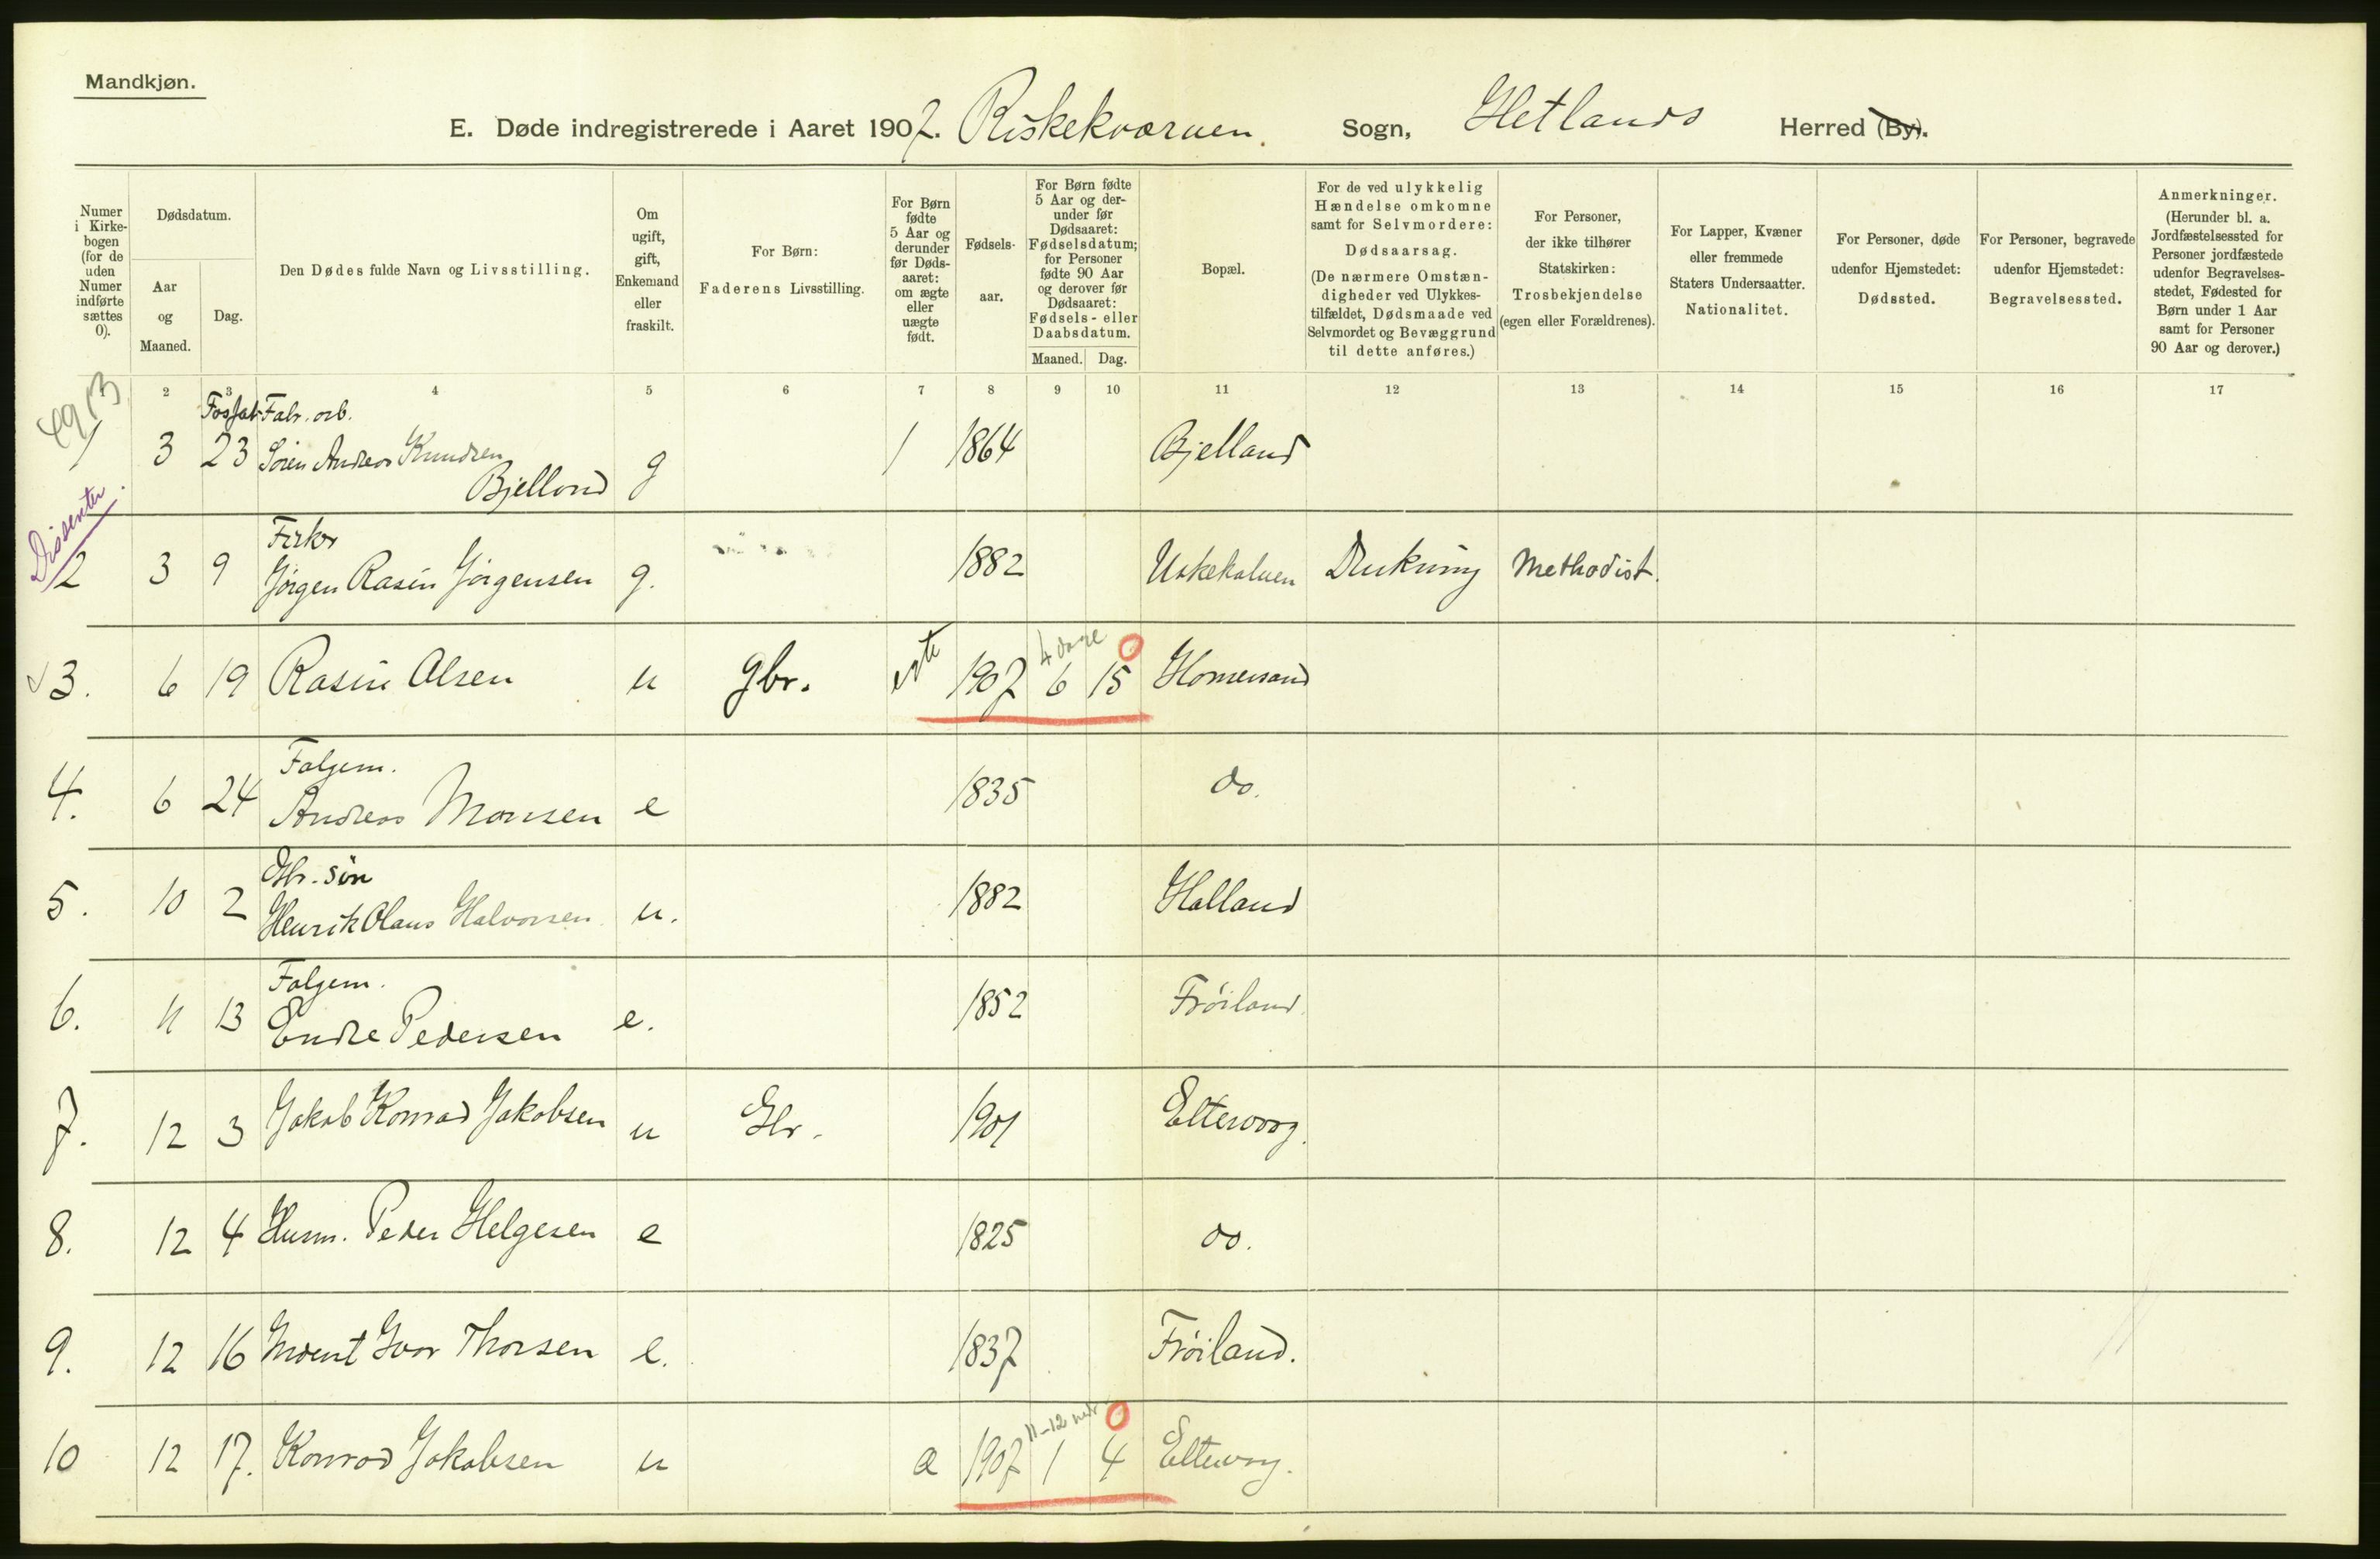 Mandkjøn.
E. Døde indregistrerede i Aaret 1907. Riskekværnen. Sogn, Hetlands Herred (By).
Numer i Kirke-bogen (for de uden Numer indførte sættes 0).
Dødsdatum.
Aar og Maaned.
Dag.
Den Dødes fulde Navn og Livsstilling.
Om ugift, gift, Enkemand eller fraskilt.
For Børn: Faderens Livsstilling.
For Børn fødte 5 Aar og derunder før Døds-aaret: om ægte eller uægte født.
Fødsels-aar.
For Børn fødte 5 Aar og der-under før Dødsaaret: Fødselsdatum; for Personer fødte 90 Aar og derover før Dødsaaret: Fødsels- eller Daabsdatum.
Maaned. Dag.
Bopæl.
For de ved ulykkelig Hændelse omkomne samt for Selvmordere: Dødsaarsag. (De nærmere Omstæn-digheder ved Ulykkes-tilfældet, Dødsmaade ved Selvmordet og Bevæggrund til dette anføres.)
For Personer, der ikke tilhører Statskirken: Trosbekjendelse (egen eller Forældrenes).
For Lapper, Kvæner eller fremmede Staters Undersaatter. Nationalitet.
For Personer, døde udenfor Hjemstedet: Dødssted.
For Personer, begravede udenfor Hjemstedet: Begravelsessted.
Anmerkninger. (Herunder bl. a. Jordfæstelsessted for Personer jordfæstede udenfor Begravelses-stedet, Fødested for Børn under 1 Aar samt for Personer 90 Aar og derover.)
2 3 4 5 6 7 8 9 10 11 12 13 14 15 16 17
Fosfat Fabr. arb.
1 3 23 Sören Andreas Knudsen
Bjelland g / 1864 Bjelland
Dissenter.
Fisker
2 3 9 Jörgen Rasin Jörgensen g. 1882 Drukning Methodist.
4 dage
3. 6 19 Rasin Olsen u gbr. ekte 1907 6 15 Homersand
Folgem.
4. 6 24 Andreas Monsen e 1835 do.
Gbr. sön
5. 10 2 Henrik Olaus Halvorsen u. 1882 Halland
Folgem.
6. 11 13 Endre Pedersen e. 1852 Fröiland.
7. 12 3 Jakob Konrad Jakobsen u Gbr. 1901 Eltervaag.
8. 12 4 Husm. Peder Helgesen e 1825 do.
9. 12 16 Ivar Thorsen e. 1837 Fröiland.
11-12 mdr
10 12 17. Konrad Jakobsen u a 1907 1 4 Eltervaag.